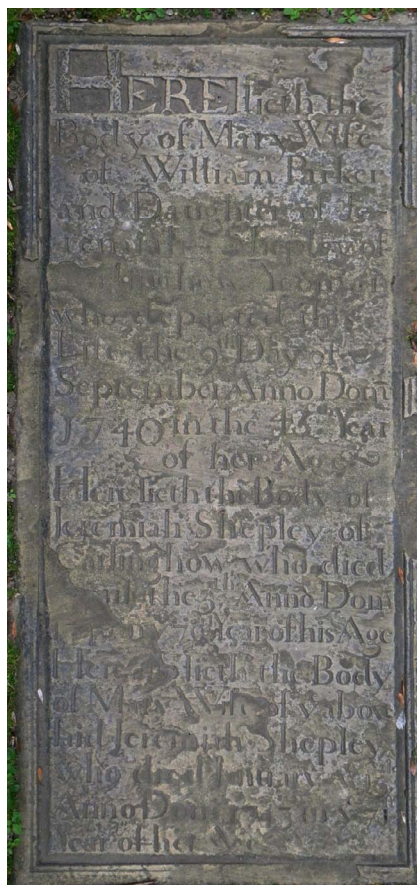 HERE lieth the
Body of Mary Wife
of William Parker
and Daughter of Je-
remiah Shepley of
Yeoman
who departed this
Life the 9th Day of
September Anno Dom
1740 in the Year
of her Age
Here lieth the Body of
Jeremiah Shepley of
Carlinghow who died
the Anno Dom
Year of his Age
Here lieth the Body
of Mary Wife of y above
said Jeremiah Shepley
who died January
Anno Dom
Year of her Age